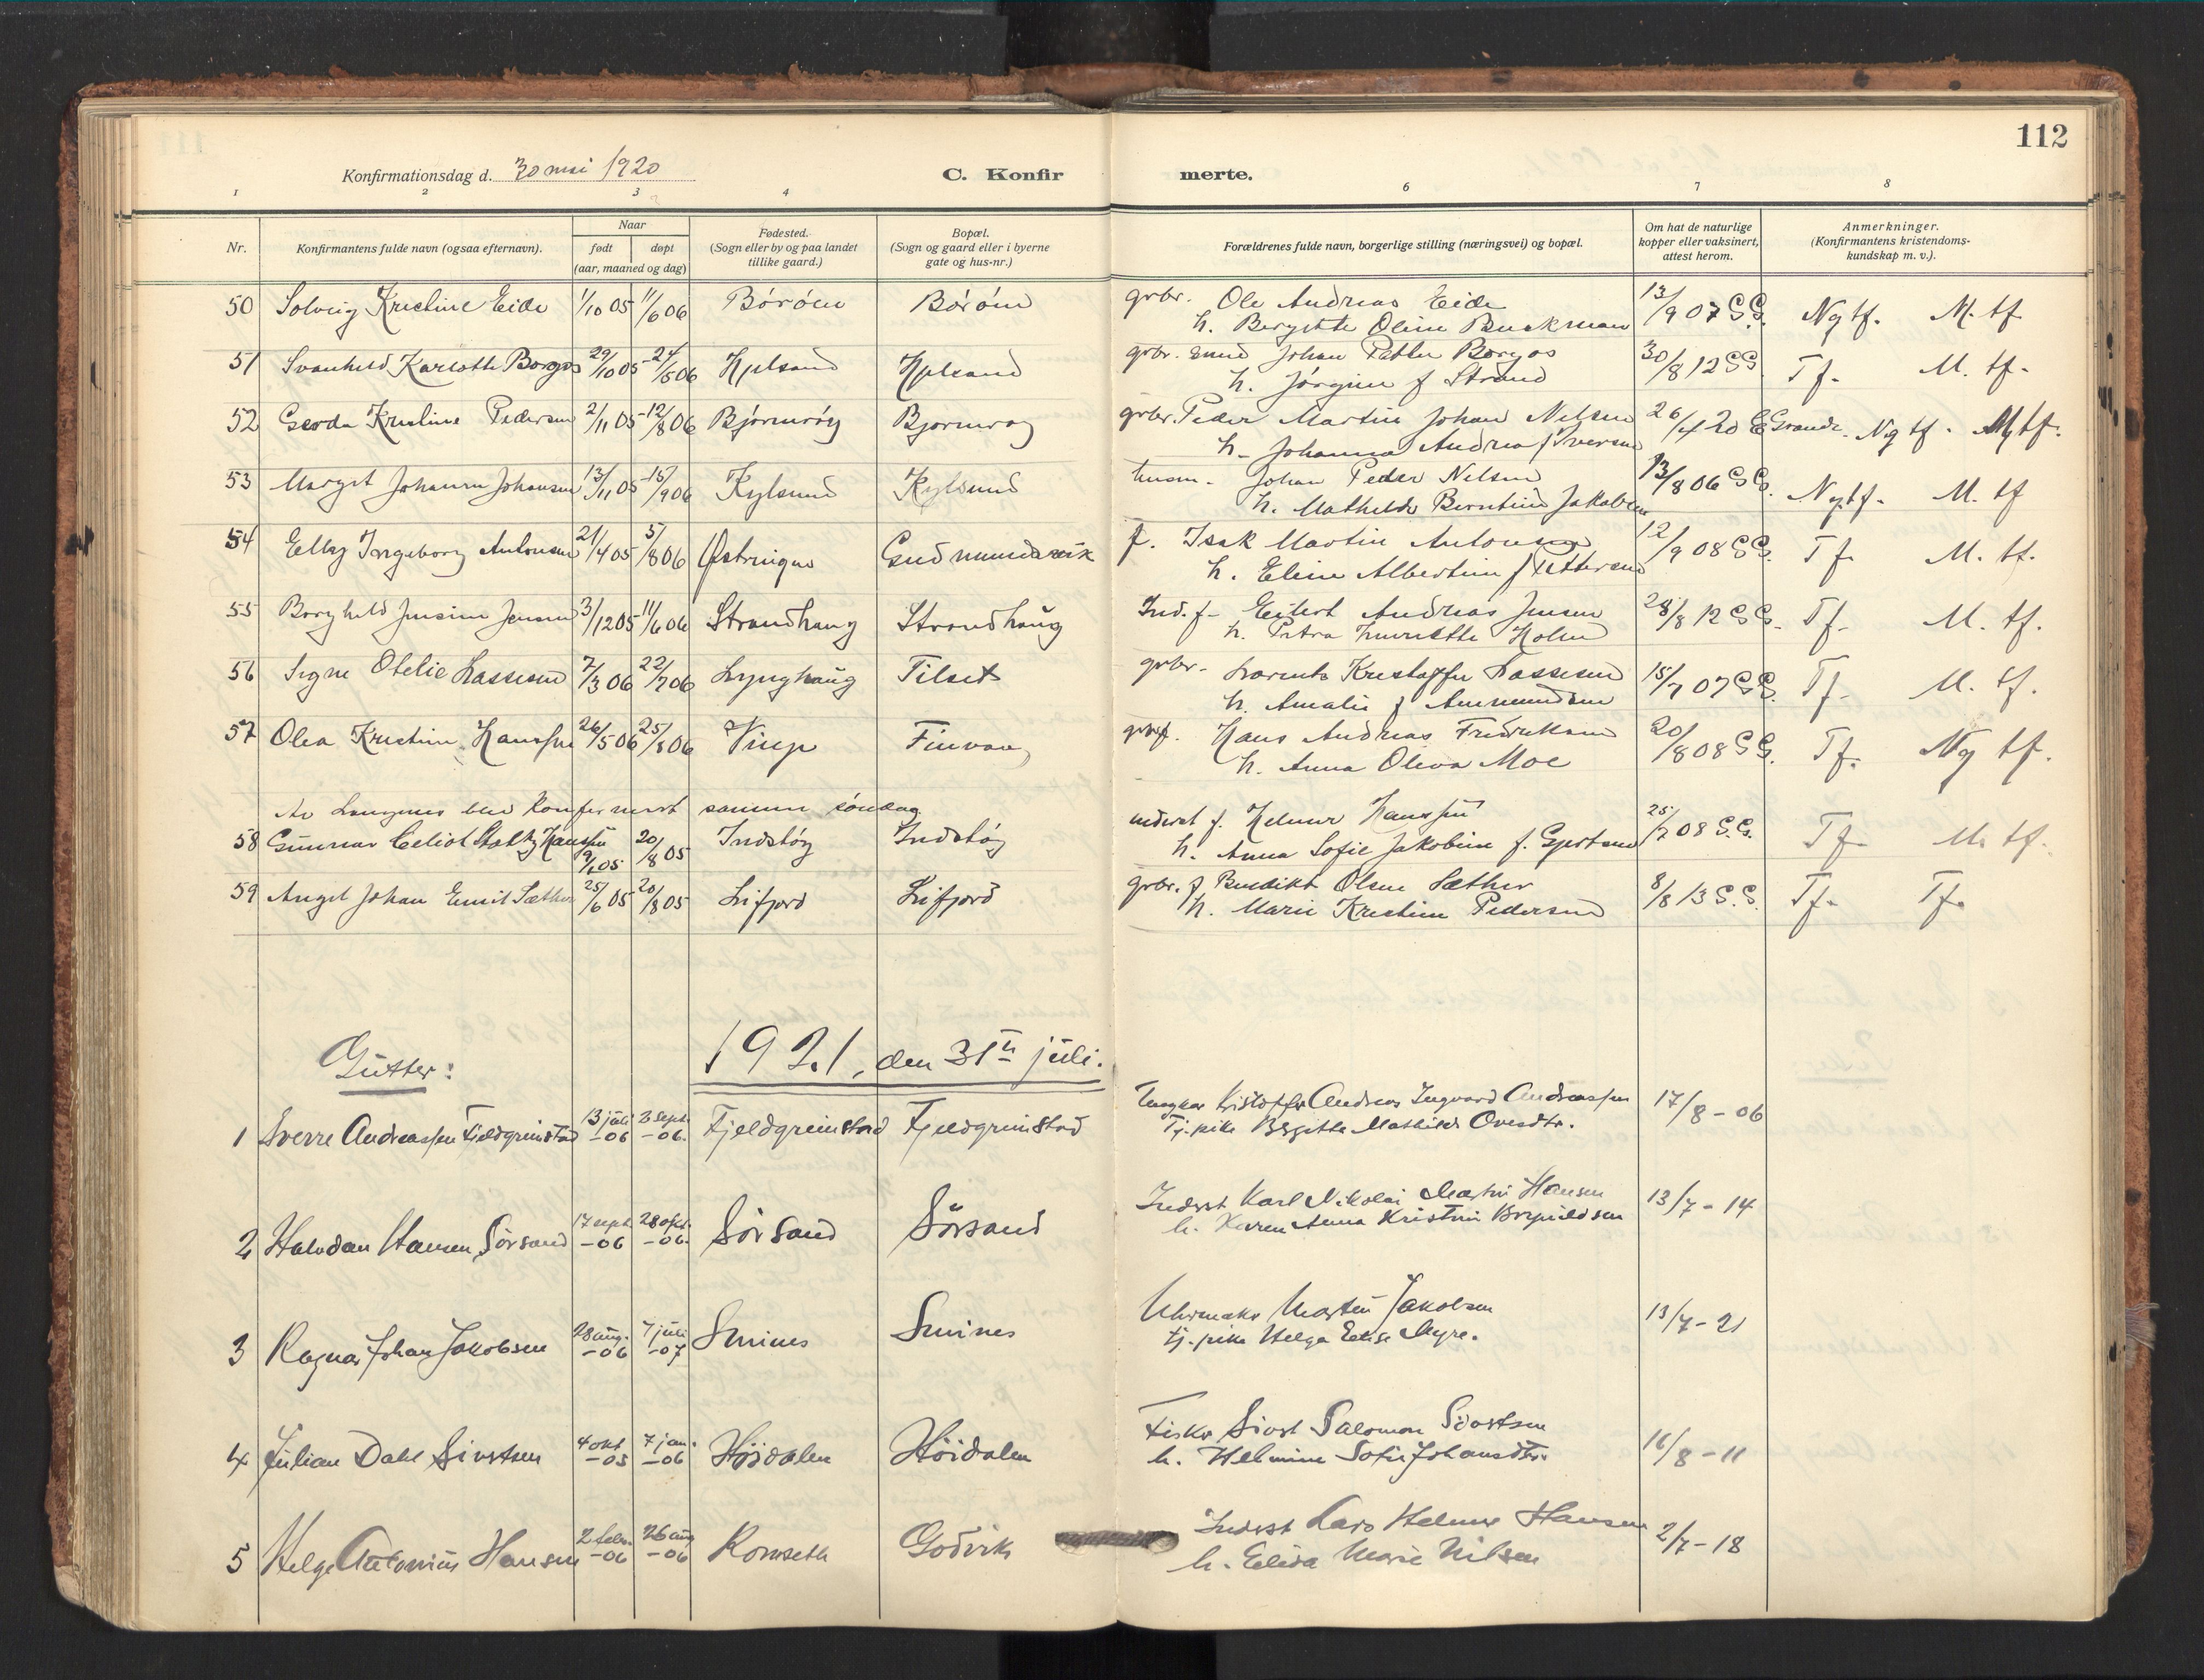 112
Konfirmationsdag d. 30 mai 1920
C. Konfirmerte.
1 2 3 4 6 7 8
Nr.
Konfirmantens fulde navn (ogsaa efternavn).
Naar
født døpt
(aar, maaned og dag)
Fødested.
(Sogn eller by og paa landet
tillike gaard.)
Bopæl.
(Sogn og gaard eller i byerne
gate og hus-nr.)
Forældrenes fulde navn, borgerlige stilling (næringsvei) og bopæl.
Om hat de naturlige
kopper eller vaksinert,
attest herom.
Anmerkninger.
(Konfirmantens kristendoms-
kundskap m. v.).
50 Solveig Kristine Eide 1/10 05 11/6 06 Böröen Böröen grbr. Ole Andreas Eide 13/9 07 S.G. Ng tf. M. tf
h. Bergitte Oline Buckman
51 Svanhild Karlotte Borgos 29/10 05 - 24/5 06 grbr. Johan Petter Borgos 30/8 12 SG Tf. M. tf.
h. Jörgine f Strand
52 Gerda Kristine Pedersen 2/11 05 - 12/8 06 Björnröy Bjornroy grbr. Peder Martin Johan Nilsen 26/4 20 Ng tf. Ng tf.
h. Johanna Andrea f Iversen
53 Margit Johanna Johansen 13/11 05 - 15/9 06 Kylsund Kylsund husm. Johan Peder Nilsen 13/8 06 S.G. Ng. tf. M. tf
h. Mathilde Berntine Jakobsen
54 Elly Ingeborg Antonsen 21/4 05 5/8 06 Gudmundsvik f. Isak Martin Antonsen 12/9 08 S.G. Tf. M. tf.
h. Eline Albertine f Pettersen
55 Borghild Jensine Jensen 3/12 05 11/6 06 Strandhaug Strandhaug Ind. f. Eilert Andreas Jensen 28/8 12 S.G. Tf. M. tf.
h. Petra Henriette Holm
56 Signe Otelie Lassesen 7/3 06 22/7 06 Lynghaug Tilset grbr. Lorents Kristoffer Lassesen 15/7 07 S.G. Tf. M. tf.
h. Amalie f Ammundsen
57 Olea Kristine Hanssen 26/5 06 25/8 06 Vinje Finvaag Hans Andreas Fredriksen 20/8 08 S.G. Tf. Ng tf.
h. Anna Oliva Moe
Av Langenes blev konfirmert samme söndag
58 Gunnar Hanssen 9/1 05 20/8 05 Indstöy Indstöy inderst f. Helmer Hanssen 25/7 08 S.G. Tf. M. tf.
h. Anna Sofie Jakobine f. Gjertsen
59 Angel Johan Emil Sæther 25/6 05 20/8 05 Lifjord Lifjord grbr. f Benedikt Olsen Sæther 8/8 13 S.G. Tf. Tf.
h. Marie Kristine Pedersen
Gutter:
1921, den 31te juli.
1 Sverre Andreassen Fjeldgrimstad 13 juli -06 2 sept. -06. Fjeldgrimstad Fjeldgrimstad Ungkar Kristoffer Andreas Ingvard Andreassen 17/8 - 06
Tj. pike Bergitte Mathilde Ovesdtr.
2 Halvdan Hansen Sörsand 17 sept. -06 28 okt. -06. Sörsand Sörsand Inderst Karl Nikolai Martin Hansen 13/7 - 14
h. Karen Anna Kristine
3 Ragnar Johan Jakobsen 28 aug. -06 7 juli -07 Smines Smines Uhrmaker Martin Jakobsen 13/7 - 21
tj. pike Helga Elise Myre.
4 Julian Dahl Sivertsen 4 okt -05 7 jan. -06 Höidalen Höidalen Fisker Sivert Salomon Sivertsen 16/8 - 11
h. Helmine Sofie Johansdtr.
5 Helge Antonius Hansen 2 febr. -06 26 aug -06 Romseth Godvik Inderst Lars Helmer Hansen 2/7 - 18
h. Elida Marie Nilsen